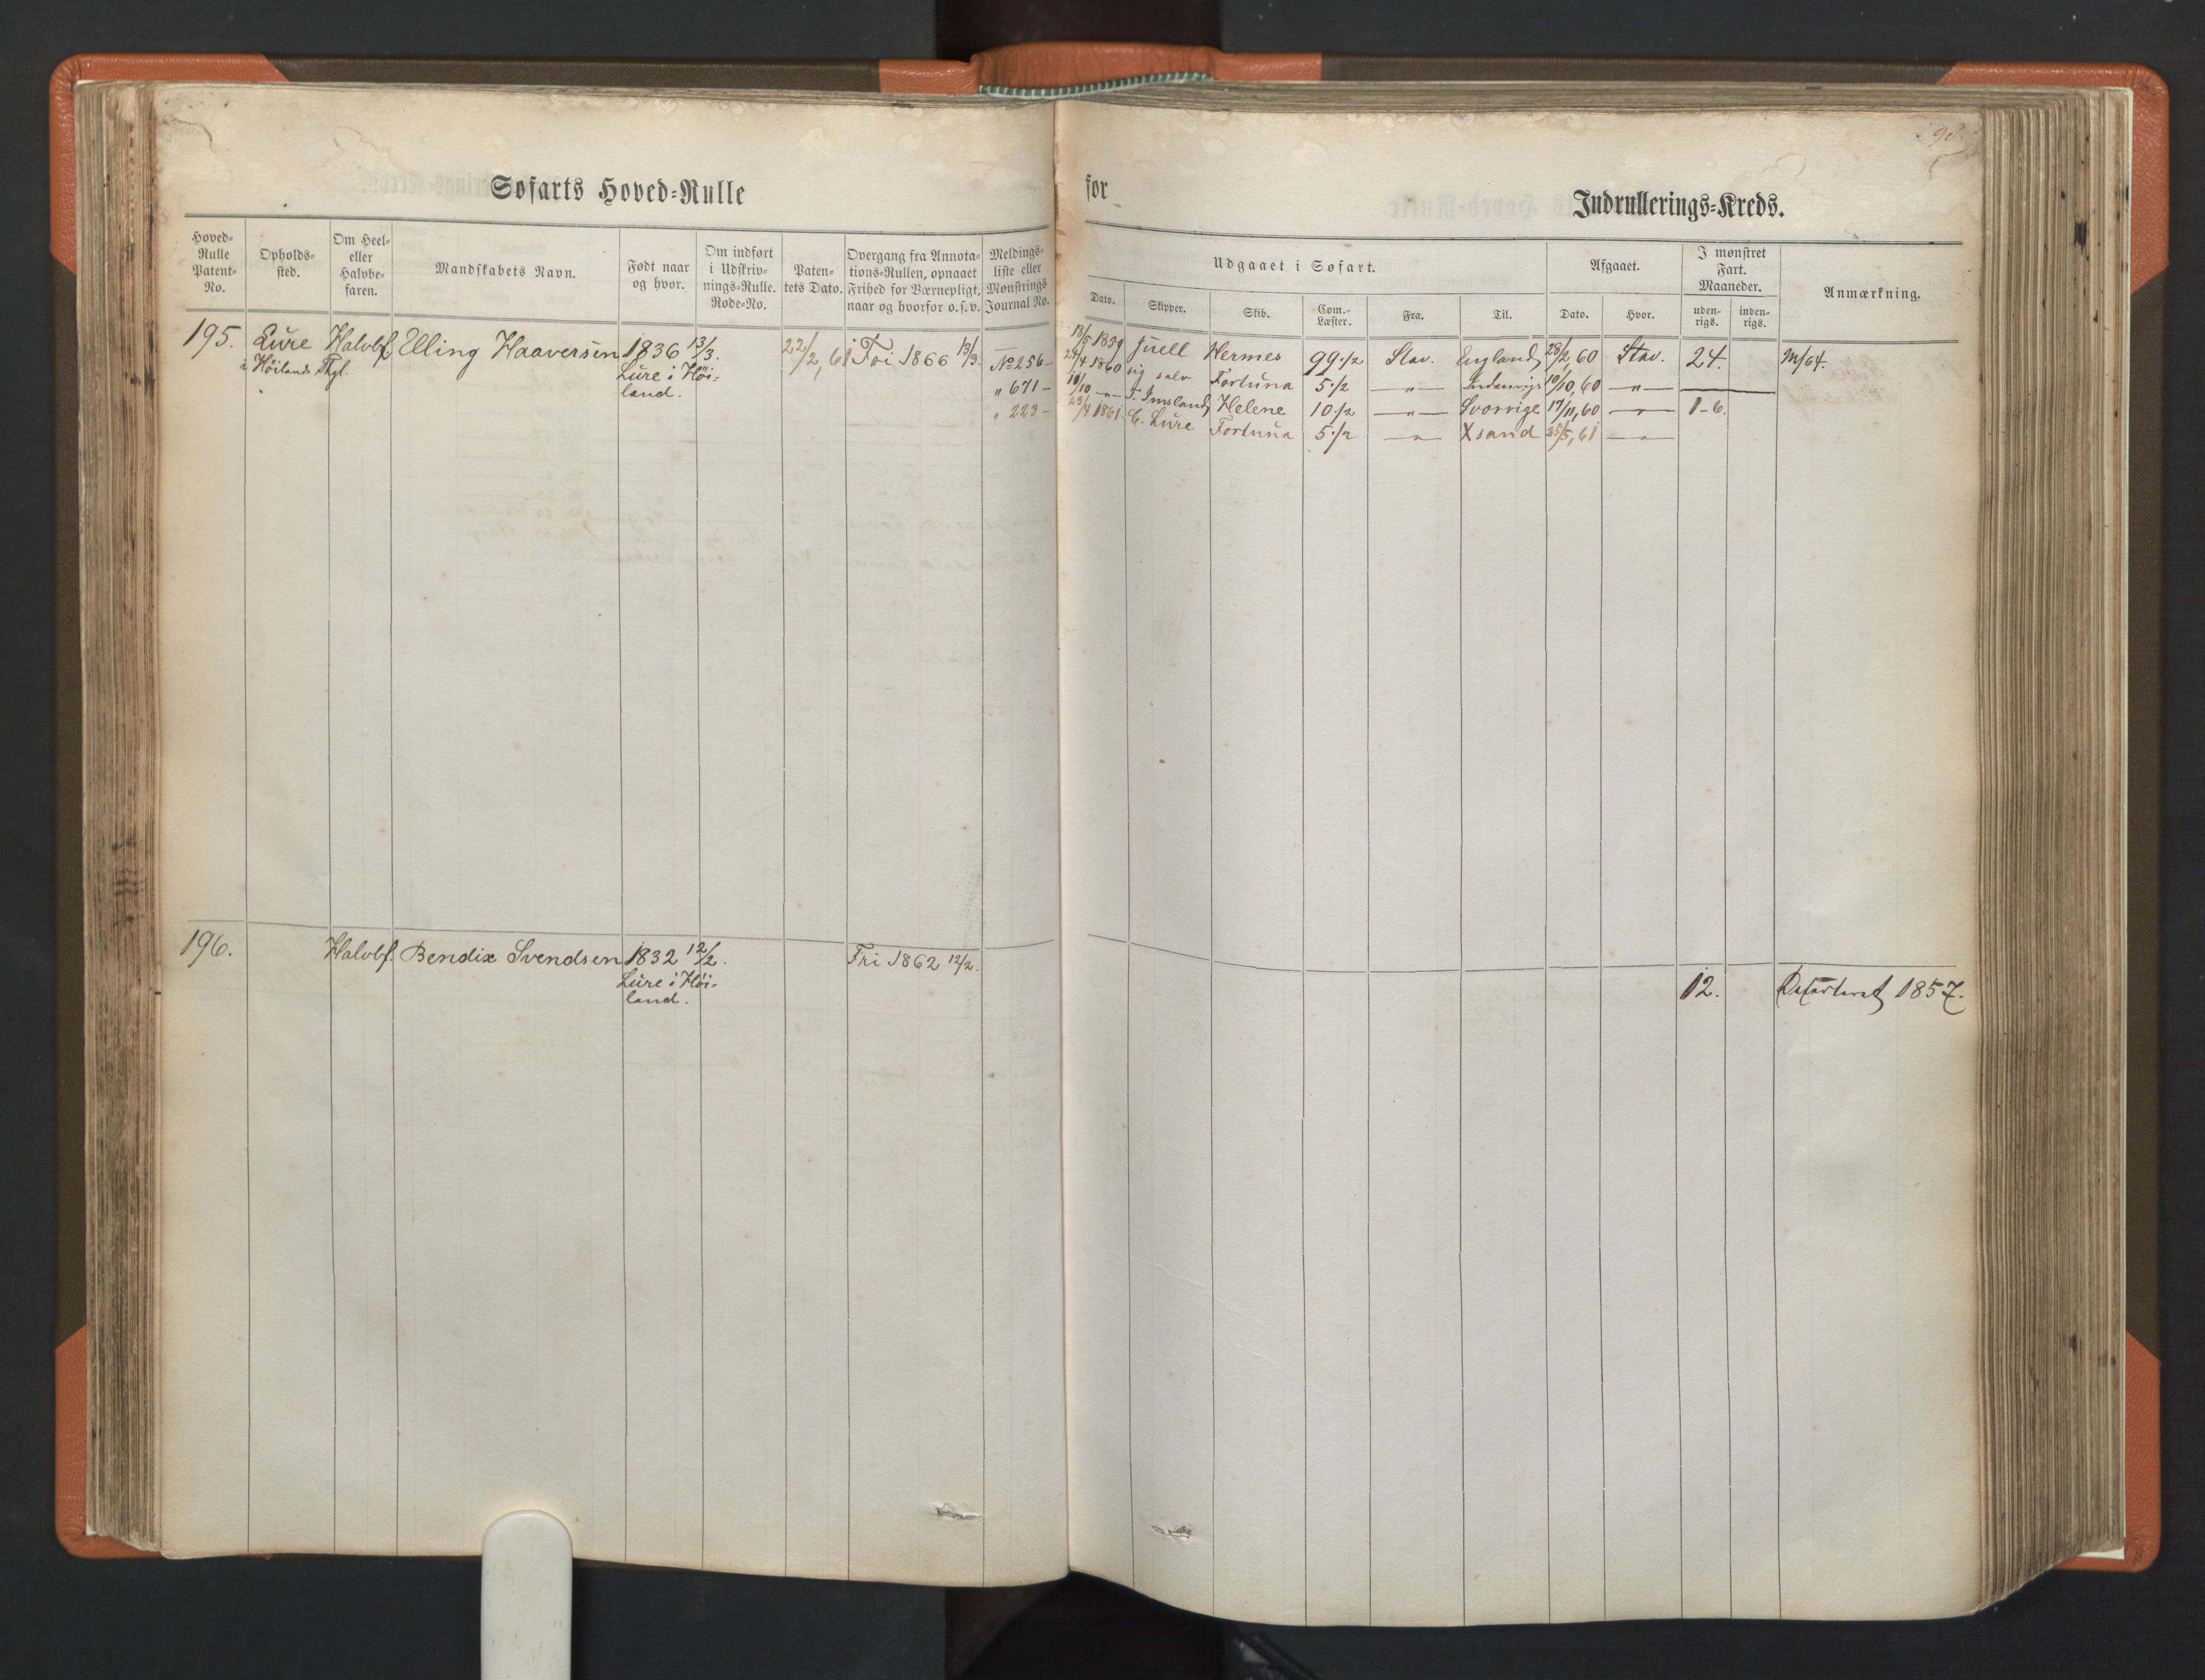 98
Søfarts Hoved-Rulle for Indrullerings-Kreds.
Hoved-Rulle Patent-No.
Opholds-sted.
Om Heel- eller Halvbe-faren.
Mandskabets Navn.
Født naar og hvor.
Om indført i Udskriv-nings-Rulle. Rode-No.
Paten-tets Dato.
Overgang fra Annota-tions-Rullen, opnaaet Frihed for Værnepligt, naar og hvorfor o.s.v.
Meldings-liste eller Mønstrings Journal No.
Udgaaet i Søfart.
Dato.
Skipper.
Skib.
Com.-Læster.
Fra.
Til.
Afgaaet.
Dato.
Hvor.
I mønstret Fart. Maaneder.
uden-rigs.
inden-rigs.
Anmærkning.
195. Lure Halvbf. Elling Haaversen 1836 13/3. 22/2, 61 Fri 1866 13/3. No 256 – 18/5 1859 Juell Hermes 99 1/2 Stav. England 28/2, 60 Stav. 24. M/64.
i Höilands Thgl. Lure i Höi-
land.
" 671 – 24/4 1860 sig selv Fortuna 5 1/2 — " — Indenrigs 10/10, 60 — " —
" 223 – 10/10 — " — T. Imsland Helene 10 1/2 — " — Sverrige 17/11, 60 — " — 1–6.
23/4 1861. C. Lure Fortuna 5 1/2 — " — Xsand 25/5, 61 — " —
196. Halvbf. Bendix Svendsen 1832 12/2. Fri 1862 12/2. 12. Deserteret 1857.
Lure i Höi-
land.